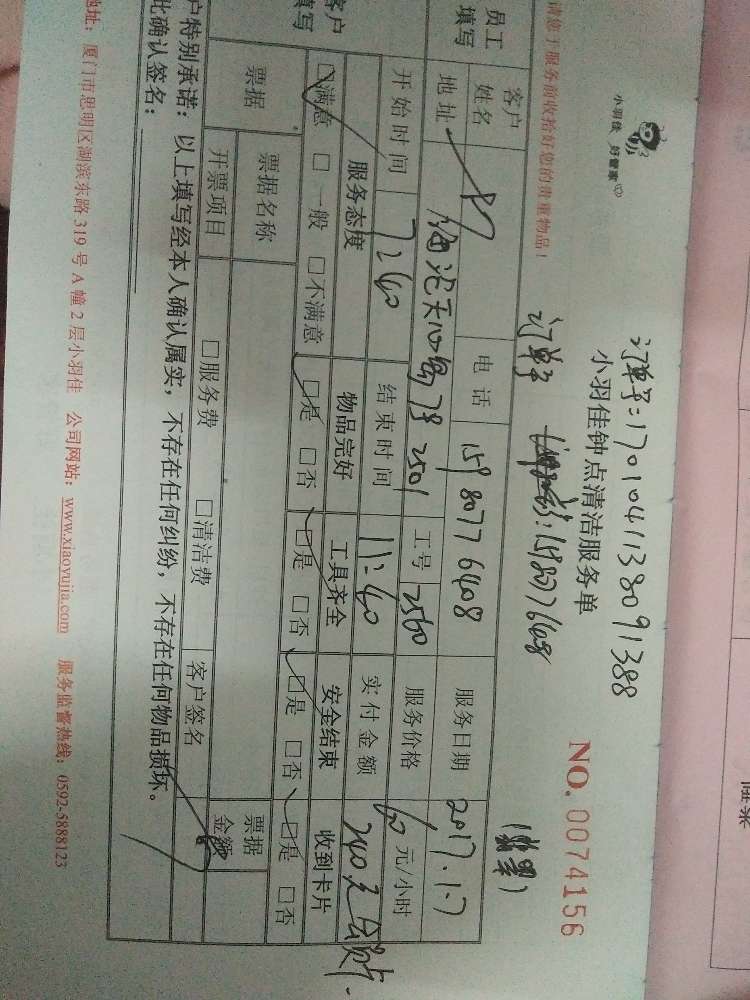 小羽佳 好管家
订单号:1701041138091388
小羽佳钟点清洁服务单
NO. 0074156
请您于服务前收拾好您的贵重物品!
订单号
:15980776408
员工填写
客户姓名
电话
15980776408
服务日期
2017.1.7
地址
250
工号
2560
服务价格
60元/小时
开始时间
7:40
结束时间
11:40
实付金额
240元
客户填写
服务态度
物品完好
工具齐全
安全结束
收到卡片
□满意 □一般 □不满意
□是 □否
□是 □否
□是 □否
□是 □否
票据
票据名称
票据金额
开票项目
□服务费 □清洁费
客户签名
户特别承诺:以上填写经本人确认属实,不存在任何纠纷,不存在任何物品损坏。
此确认签名:
地址:厦门市思明区湖滨东路319号A幢2层小羽佳 公司网站:www.xiaoyujia.com 服务监督热线:0592-5888123